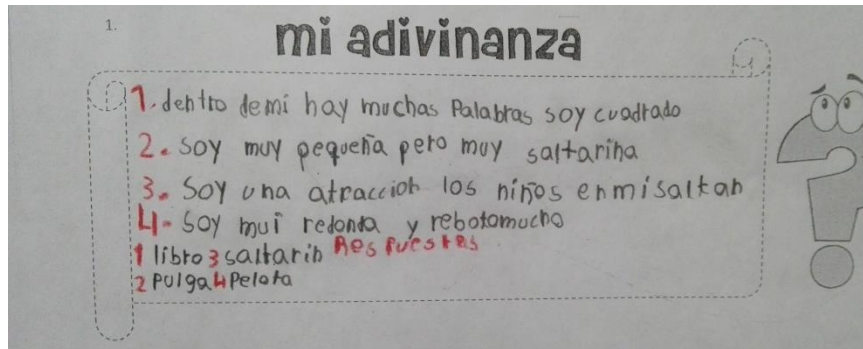 1.
mi adivinanza
1. dentro demi hay muchas Palabras soy cuadrado
2. soy muy pequeña pero muy saltarina
3. Soy una atraccion los niños enmisaltan
4- Soy mui redonda y rebotomucho
1 libro 3 saltarin Respuestas
2 Pulga 4 Pelota